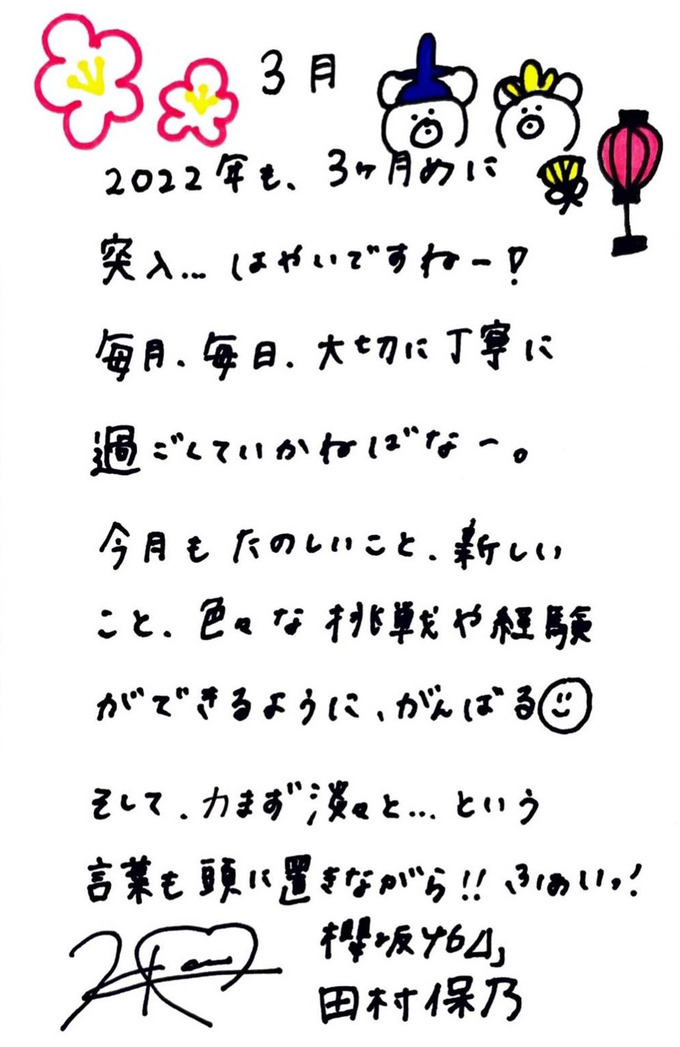 3月
2022年も、3ヶ月めに
突入...はやいですねー!
毎月、毎日、大切に丁寧に
過ごしていかねばなー。
今月もたのしいこと、新しい
こと、色々な挑戦や経験
ができるように、がんばる
そして、力まず淡々と...という
言葉も頭に置きながら!!ふぁいっ!
櫻坂46
田村保乃